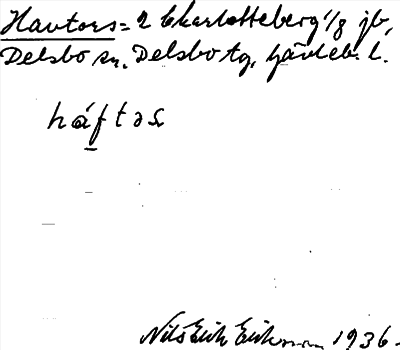 Havtors = 2 Charlotteberg 1/8 jb,
Delsbo sn. Delsbo tg, Gävleb. l.
háftəs
Nils Erik Eriksson 1936.